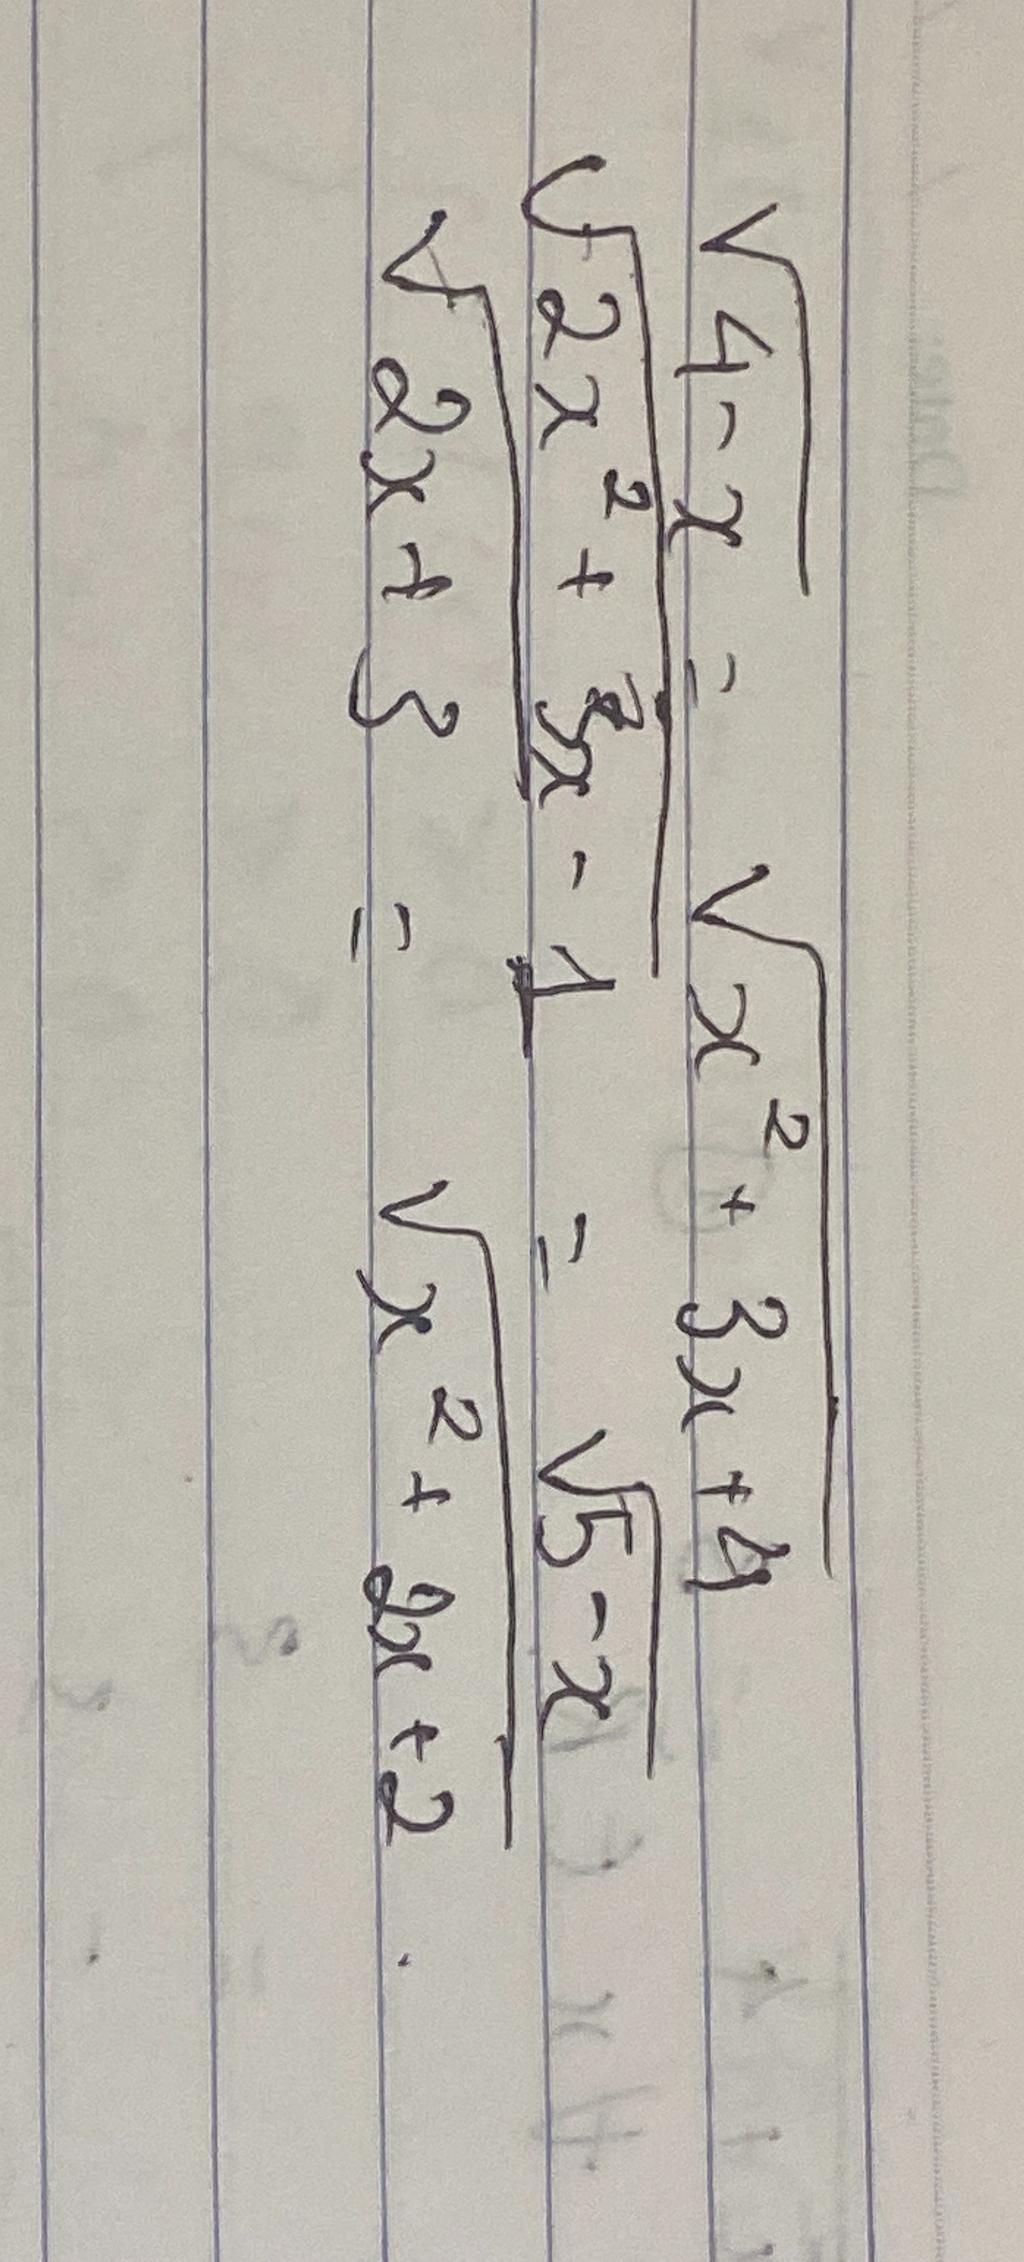 √4-x = √x² + 3x + 4
√2x² + 3x - 1 = √5-x
√2x + 3 = √x² + 2x + 2